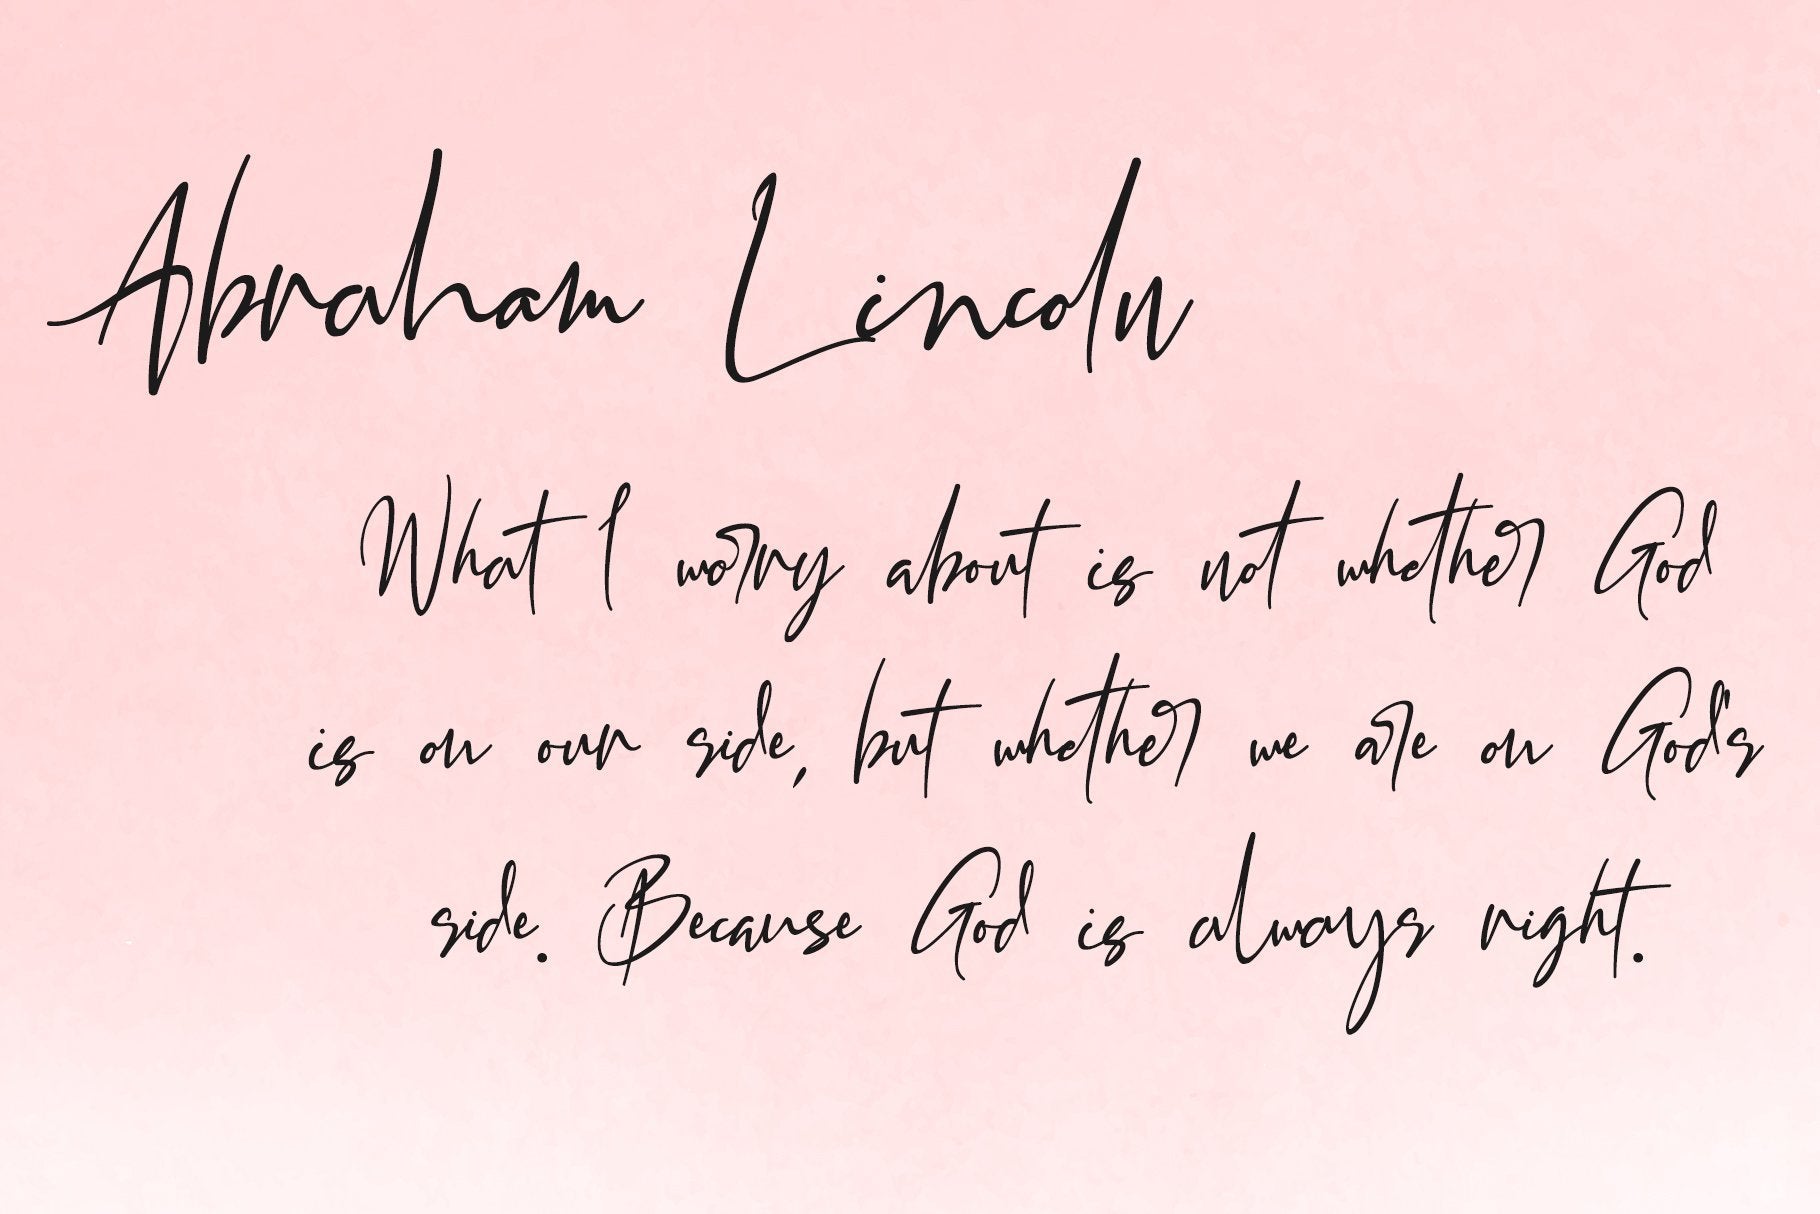 Abraham Lincoln
What I worry about is not whether God
is on our side, but whether we are on God's
side. Because God is always right.